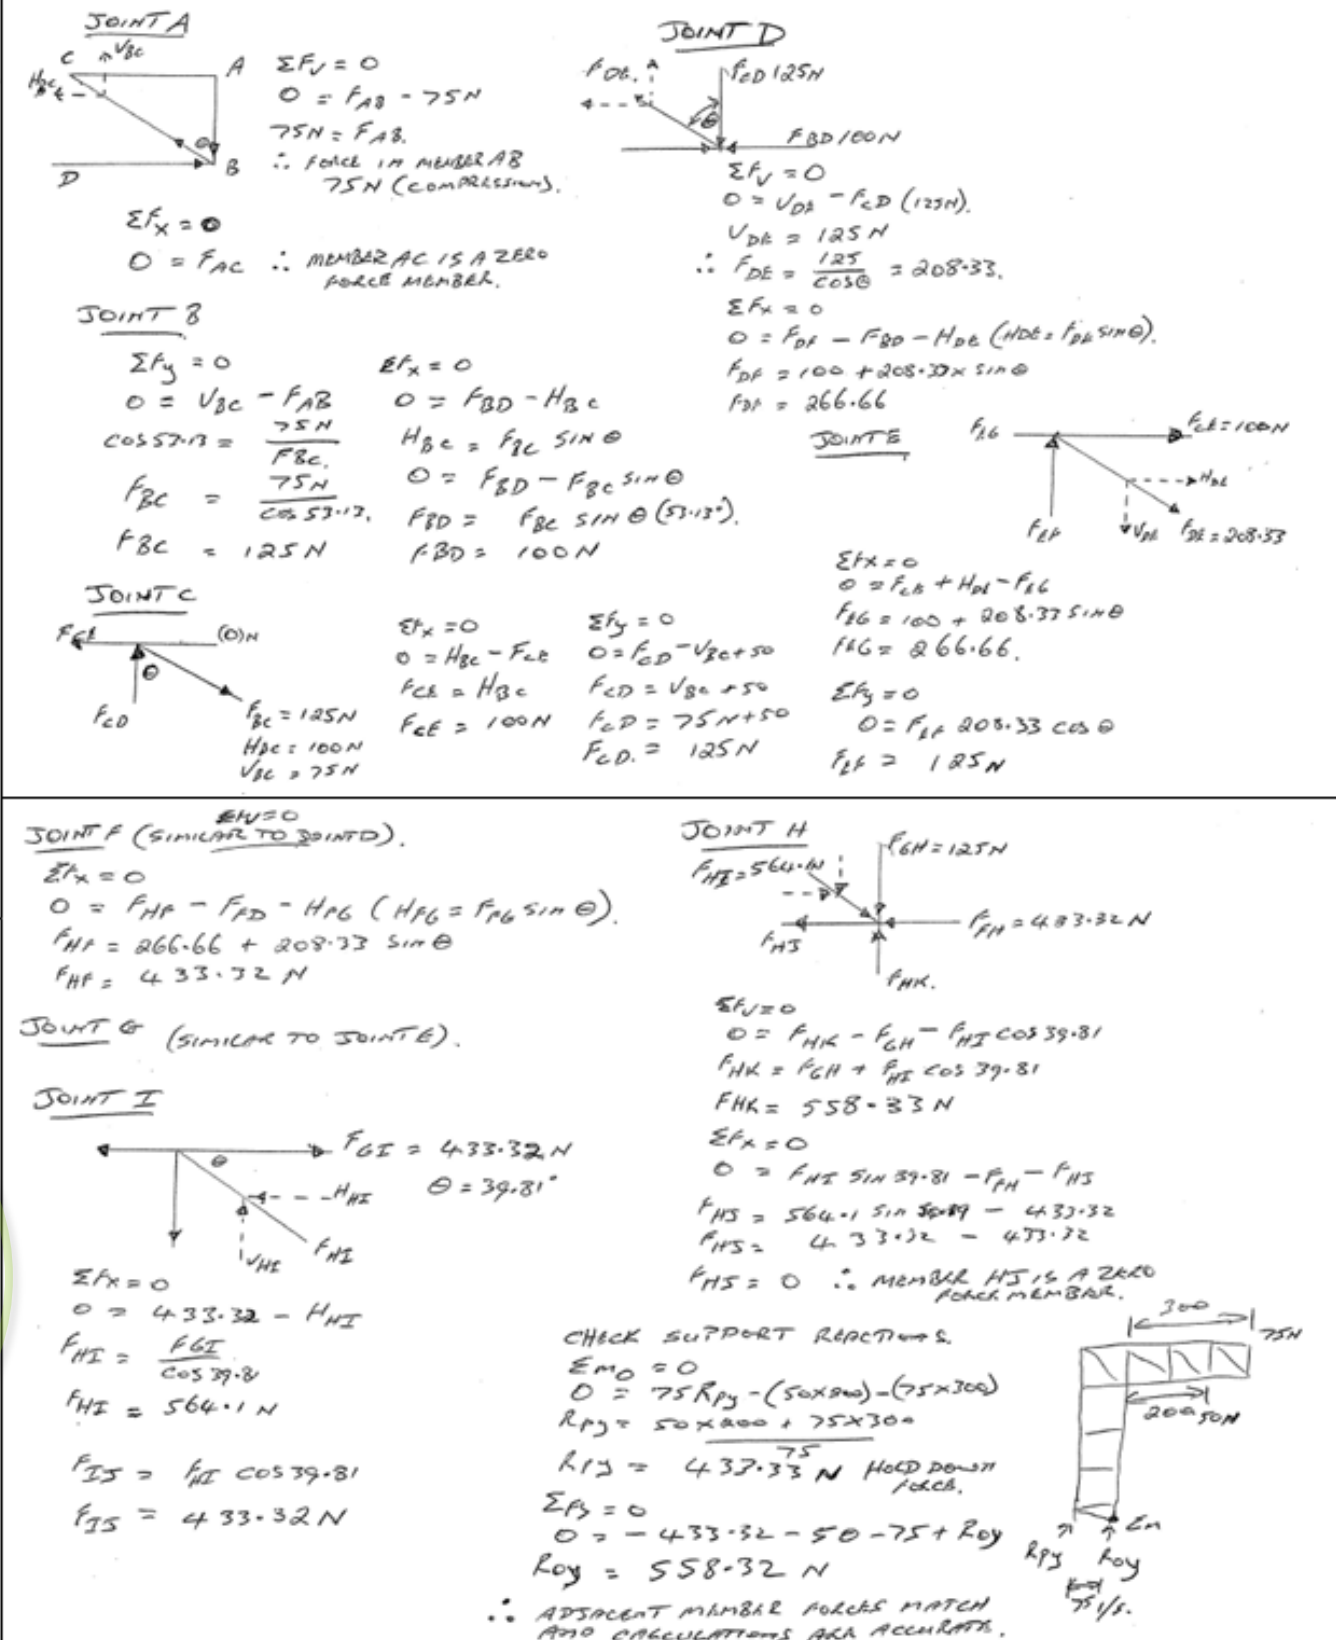 JOINT A
C
VBC
HBC
A
θ
B
D
ΣFV = 0
0 = FAB - 75N
75N = FAB.
∴ FORCE IN MEMBER AB
75N (COMPRESSION).
ΣFX = 0
0 = FAC ∴ MEMBER AC IS A ZERO
FORCE MEMBER.
JOINT B
ΣFy = 0
0 = VBC - FAB
COS 53.13 = 75N / FBC.
FBC = 75N / COS 53.13.
FBC = 125N
ΣFX = 0
0 = FBD - HBC
HBC = FBC SIN θ
0 = FBD - FBC SIN θ
FBD = FBC SIN θ (53.13°).
FBD = 100N
JOINT C
FCE
(0)N
θ
FCD
FBC = 125N
HBC = 100N
VBC = 75N
ΣFX = 0
0 = HBC - FCE
FCE = HBC
FCE = 100N
ΣFy = 0
0 = FCD - VBC + 50
FCD = VBC + 50
FCD = 75N + 50
FCD. = 125N
JOINT D
FDE.
FCD 125N
θ
FBD 100N
ΣFV = 0
0 = VDE - FCD (125N).
VDE = 125N
∴ FDE = 125 / COSθ = 208.33.
ΣFX = 0
0 = FDF - FBD - HDE (HDE = FDE SINθ).
FDF = 100 + 208.33 x SINθ
FDF = 266.66
JOINT E
FEG
FCE = 100N
HDE
FEF
VDE
FDE = 208.33
ΣFX = 0
0 = FCE + HDE - FEG
FEG = 100 + 208.33 SINθ
FEG = 266.66.
ΣFy = 0
0 = FEF 208.33 COS θ
FEF = 125N
ΣFV = 0
JOINT F (SIMILAR TO JOINT D).
ΣFX = 0
0 = FHF - FFD - HFG (HFG = FFG SIN θ).
FHF = 266.66 + 208.33 SIN θ
FHF = 433.32 N
JOINT G (SIMILAR TO JOINT E).
JOINT I
FGI = 433.32N
θ
θ = 39.81°
HHI
VHI
FHI
ΣFX = 0
0 = 433.32 - HHI
FHI = FGI / COS 39.81
FHI = 564.1 N
FIJ = FHI COS 39.81
FIJ = 433.32N
JOINT H
FHI = 564.1N
FGH = 125N
FFH = 433.32N
FHJ
FHK.
ΣFV = 0
0 = FHK - FGH - FHI COS 39.81
FHK = FGH + FHI COS 39.81
FHK = 558.33N
ΣFX = 0
0 = FHI SIN 39.81 - FFH - FHJ
FHJ = 564.1 SIN - 433.32
FHJ = 433.32 - 433.32
FHJ = 0 ∴ MEMBER HJ IS A ZERO
FORCE MEMBER.
CHECK SUPPORT REACTIONS.
ΣMO = 0
0 = 75RPY - (50x200) - (75x300)
RPY = 50x200 + 75x300 / 75
RPY = 433.33 N HOLD DOWN
FORCE.
ΣFy = 0
0 = -433.32 - 50 - 75 + ROY
ROY = 558.32 N
∴ ADJACENT MEMBER FORCES MATCH
AND CALCULATIONS ARE ACCURATE.
300
75N
200
50N
Σm
RPY
ROY
75